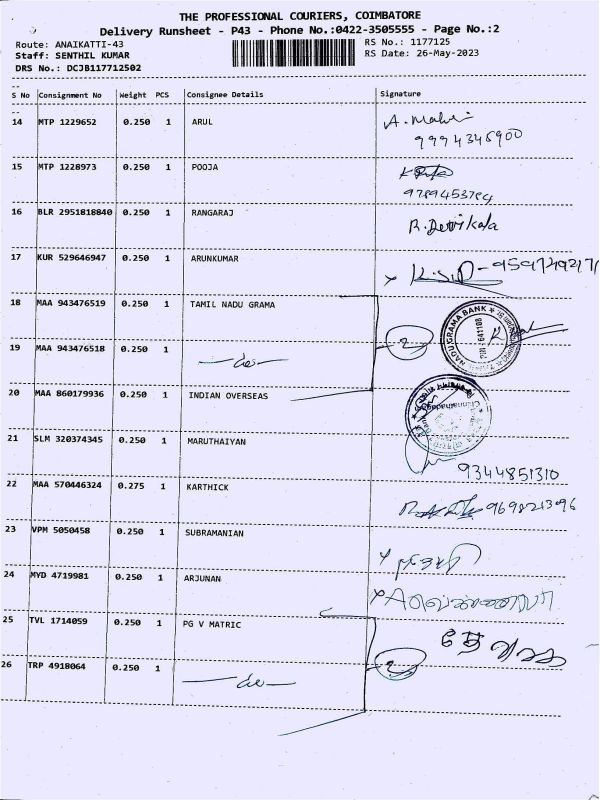 THE PROFESSIONAL COURIERS, COIMBATORE
Delivery Runsheet - P43 - Phone No.:0422-3505555 - Page No.:2
Route: ANAIKATTI-43 RS No.: 1177125
Staff: SENTHIL KUMAR RS Date: 26-May-2023
DRS No.: DCJB117712502
S No Consignment No Weight PCS Consignee Details Signature
14 MTP 1229652 0.250 1 ARUL
9994346900
15 MTP 1228973 0.250 1 POOJA
9789453784
16 BLR 2951818840 0.250 1 RANGARAJ R. Devikala
17 KUR 529646947 0.250 1 ARUNKUMAR
18 MAA 943476519 0.250 1 TAMIL NADU GRAMA
2
NADU GRAMA BANK
19 MAA 943476518 0.250 1 do
20 MAA 860179936 0.250 1 INDIAN OVERSEAS
21 SLM 320374345 0.250 1 MARUTHAIYAN
9344851310
22 MAA 570446324 0.275 1 KARTHICK
969821396
23 VPM 5050458 0.250 1 SUBRAMANIAN
24 MYD 4719981 0.250 1 ARJUNAN
25 TVL 1714059 0.250 1 PG V MATRIC
26 TRP 4918064 0.250 1
2
do